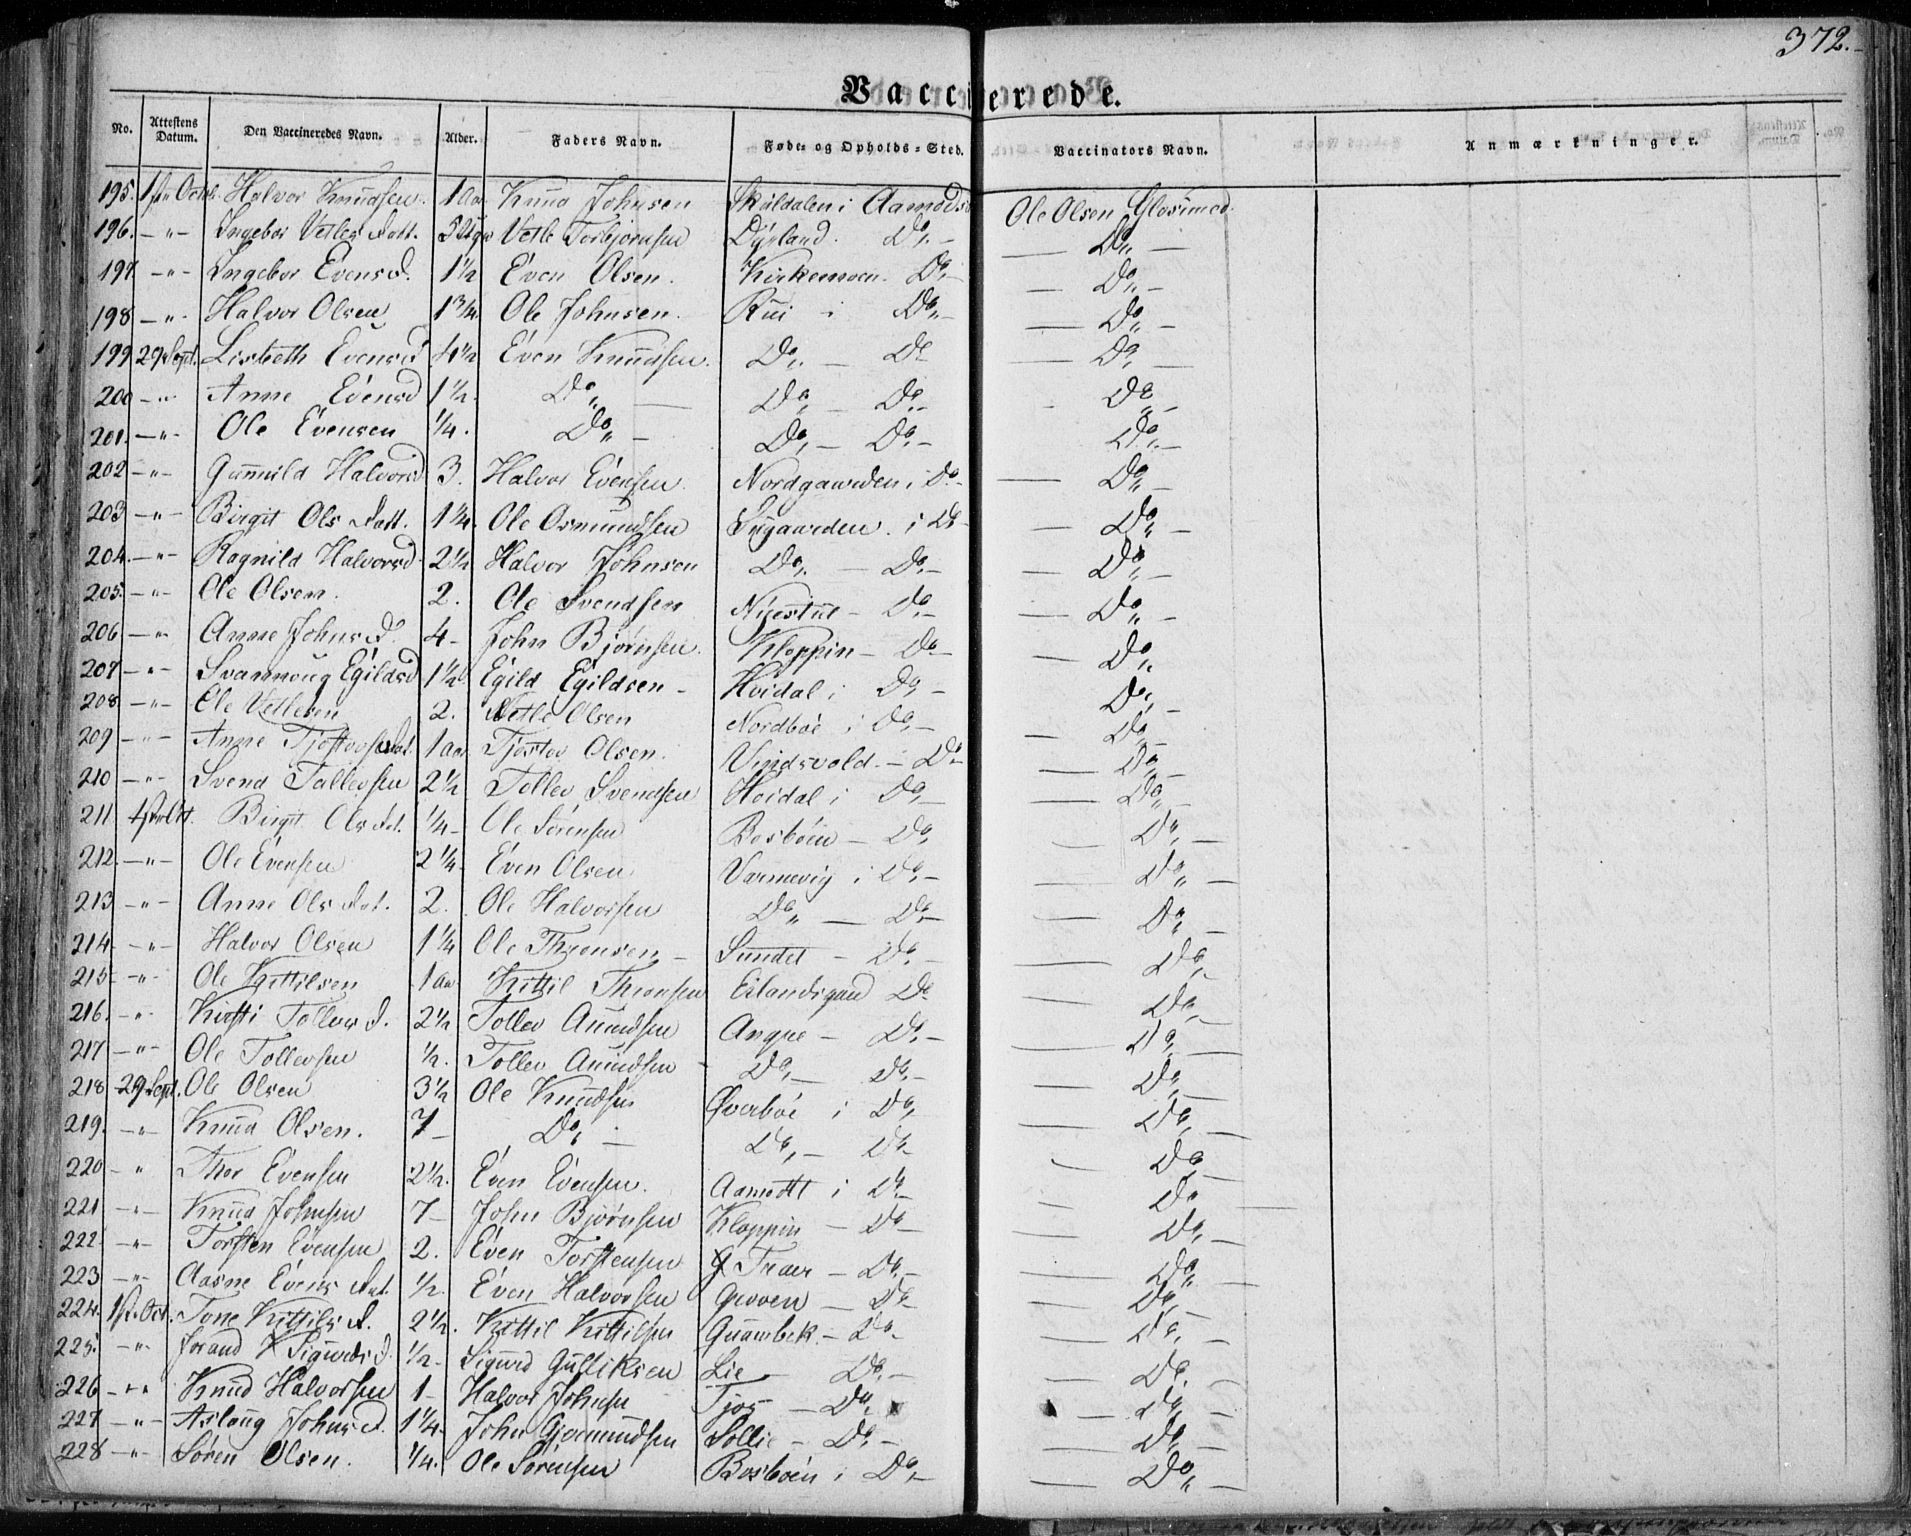 372.
Vaccinerede.
No. Attestens Datum. Den Vaccineredes Navn. Alder. Faders Navn. Føde- og Opholds-Sted. Vaccinators Navn. Anmærkninger.
195. Halvor Knudsen. 1 aar Knud Johnsen Skåldalen i Aamodts Ole Olsen Glosimod.
196. -"- Ingebor Vetles Datt. Vetle Torbjørnsen Dÿrland. Do,- - Do,, -
197. -"- Ingebor Evensd. 1½ Even Olsen. Kirkemoen. Do,- - Do,, -
198. -"- Halvor Olsen 1¾ Ole Johnsen. Rui i Do,- - Do,, -
199. 29 Sept. Lisbeth Evensd 4½ Even Knudsen. Do,, - Do - Do, -
200. -"- Anne Evensd 1½. Do,, - Do,, - Do,- - Do,, -
201. -"- Ole Evensen ¼. Do,, - Do,, - Do,- Do,, -
202. -"- Gunnild Halvorsd 3. Halvor Evensen. Nordgaarden i Do- - Do,, -
203. -"- Birgit Ols Datt. 1¼. Ole Osmundsen Sÿgaarden. i Do - Do,, -
204. -"- Ragnild Halvorsd 2½ Halvor Johnsen Do,, - Do,- - Do,, -
205. -"- Ole Olsen. 2. Ole Svendsen Nÿestul - Do,- - Do,, -
206. -"- Anne Johnsd. 4- John Bjørnsen. Kloppin - Do- - Do,,
207. -"- Svannoug Egildsd 1½ Egild Egildsen - Hvidal i Do, - Do,, -
208. -"- Ole Vetlesen 2. Vetle Olsen Nordbøe i Do,- - Do, -
209. -"- Anne 1 aar Tjostov Olsen. Vindsvold. - Do- - Do, -
210. -"- Svend Tallevsen 2½ Tollev Svendsen Hoidal i Do,- - Do,, -
211. Birgit Ols Dat. ¼- Ole Sørensen Bosbøen - Do, - Do, -
212. -"- Ole Evensen 2¼. Even Olsen Varmevig i Do,- - Do,, -
213. -"- Anne Ols Dat. 2. Ole Halvorsen Do,, - Do,- - Do,, -
214. -"- Halvor Olsen 1¼ Ole Thronsen - Sundet - Do,- - Do,, -
215. -"- Ole Kittilsen 1 aar Kittil Thronsen Eilandsgaard Do - Do, -
216. -"- Kirsti Tollevs d. 2½ Tollev Aumdsen Do,- - Do, -
217. -"- Ole Tollevsen ½. Tollev Aumdsen - Do, - Do,- - Do, -
218. 29 Sept. Ole Olsen 3½ Ole Knudsen Øverbøe i Do, - Do, -
219. -" Knud Olsen. 7- Do, - Do, - Do - Do, -
220. -" Thor Evensen 2½. Even Evensen. Aamodtt i Do,- - Do
221. -"- Knud Johnsen 7- John Bjørnsen Kloppin - Do - Do, -
222. -"- Torsten Evensen 2. Even Torstensen Traer - Do,- - Do,,
223. -"- Aasne Evens Dat. ½. Even Halvorsen Groven - Do - Do, -
224. 1st. Oct. Tone Kittils d. 2½. Kittil Kittilsen Quambek. - Do- - Do, -
225. -"- Jorand Sigurds d. ½- Sigurd Gulliksen Lie - Do,- - Do, -
226. -"- Knud Halvorsen 1- Halvor Johnsen Tjos - Do, - Do, -
227. -"- Aslaug Johns d. 1¼. John Gjermundsen Sollie - Do,- - Do, -
228. -"- Søren Olsen. ¼. Ole Sørensen Bosbøen i Do,- - Do,, -